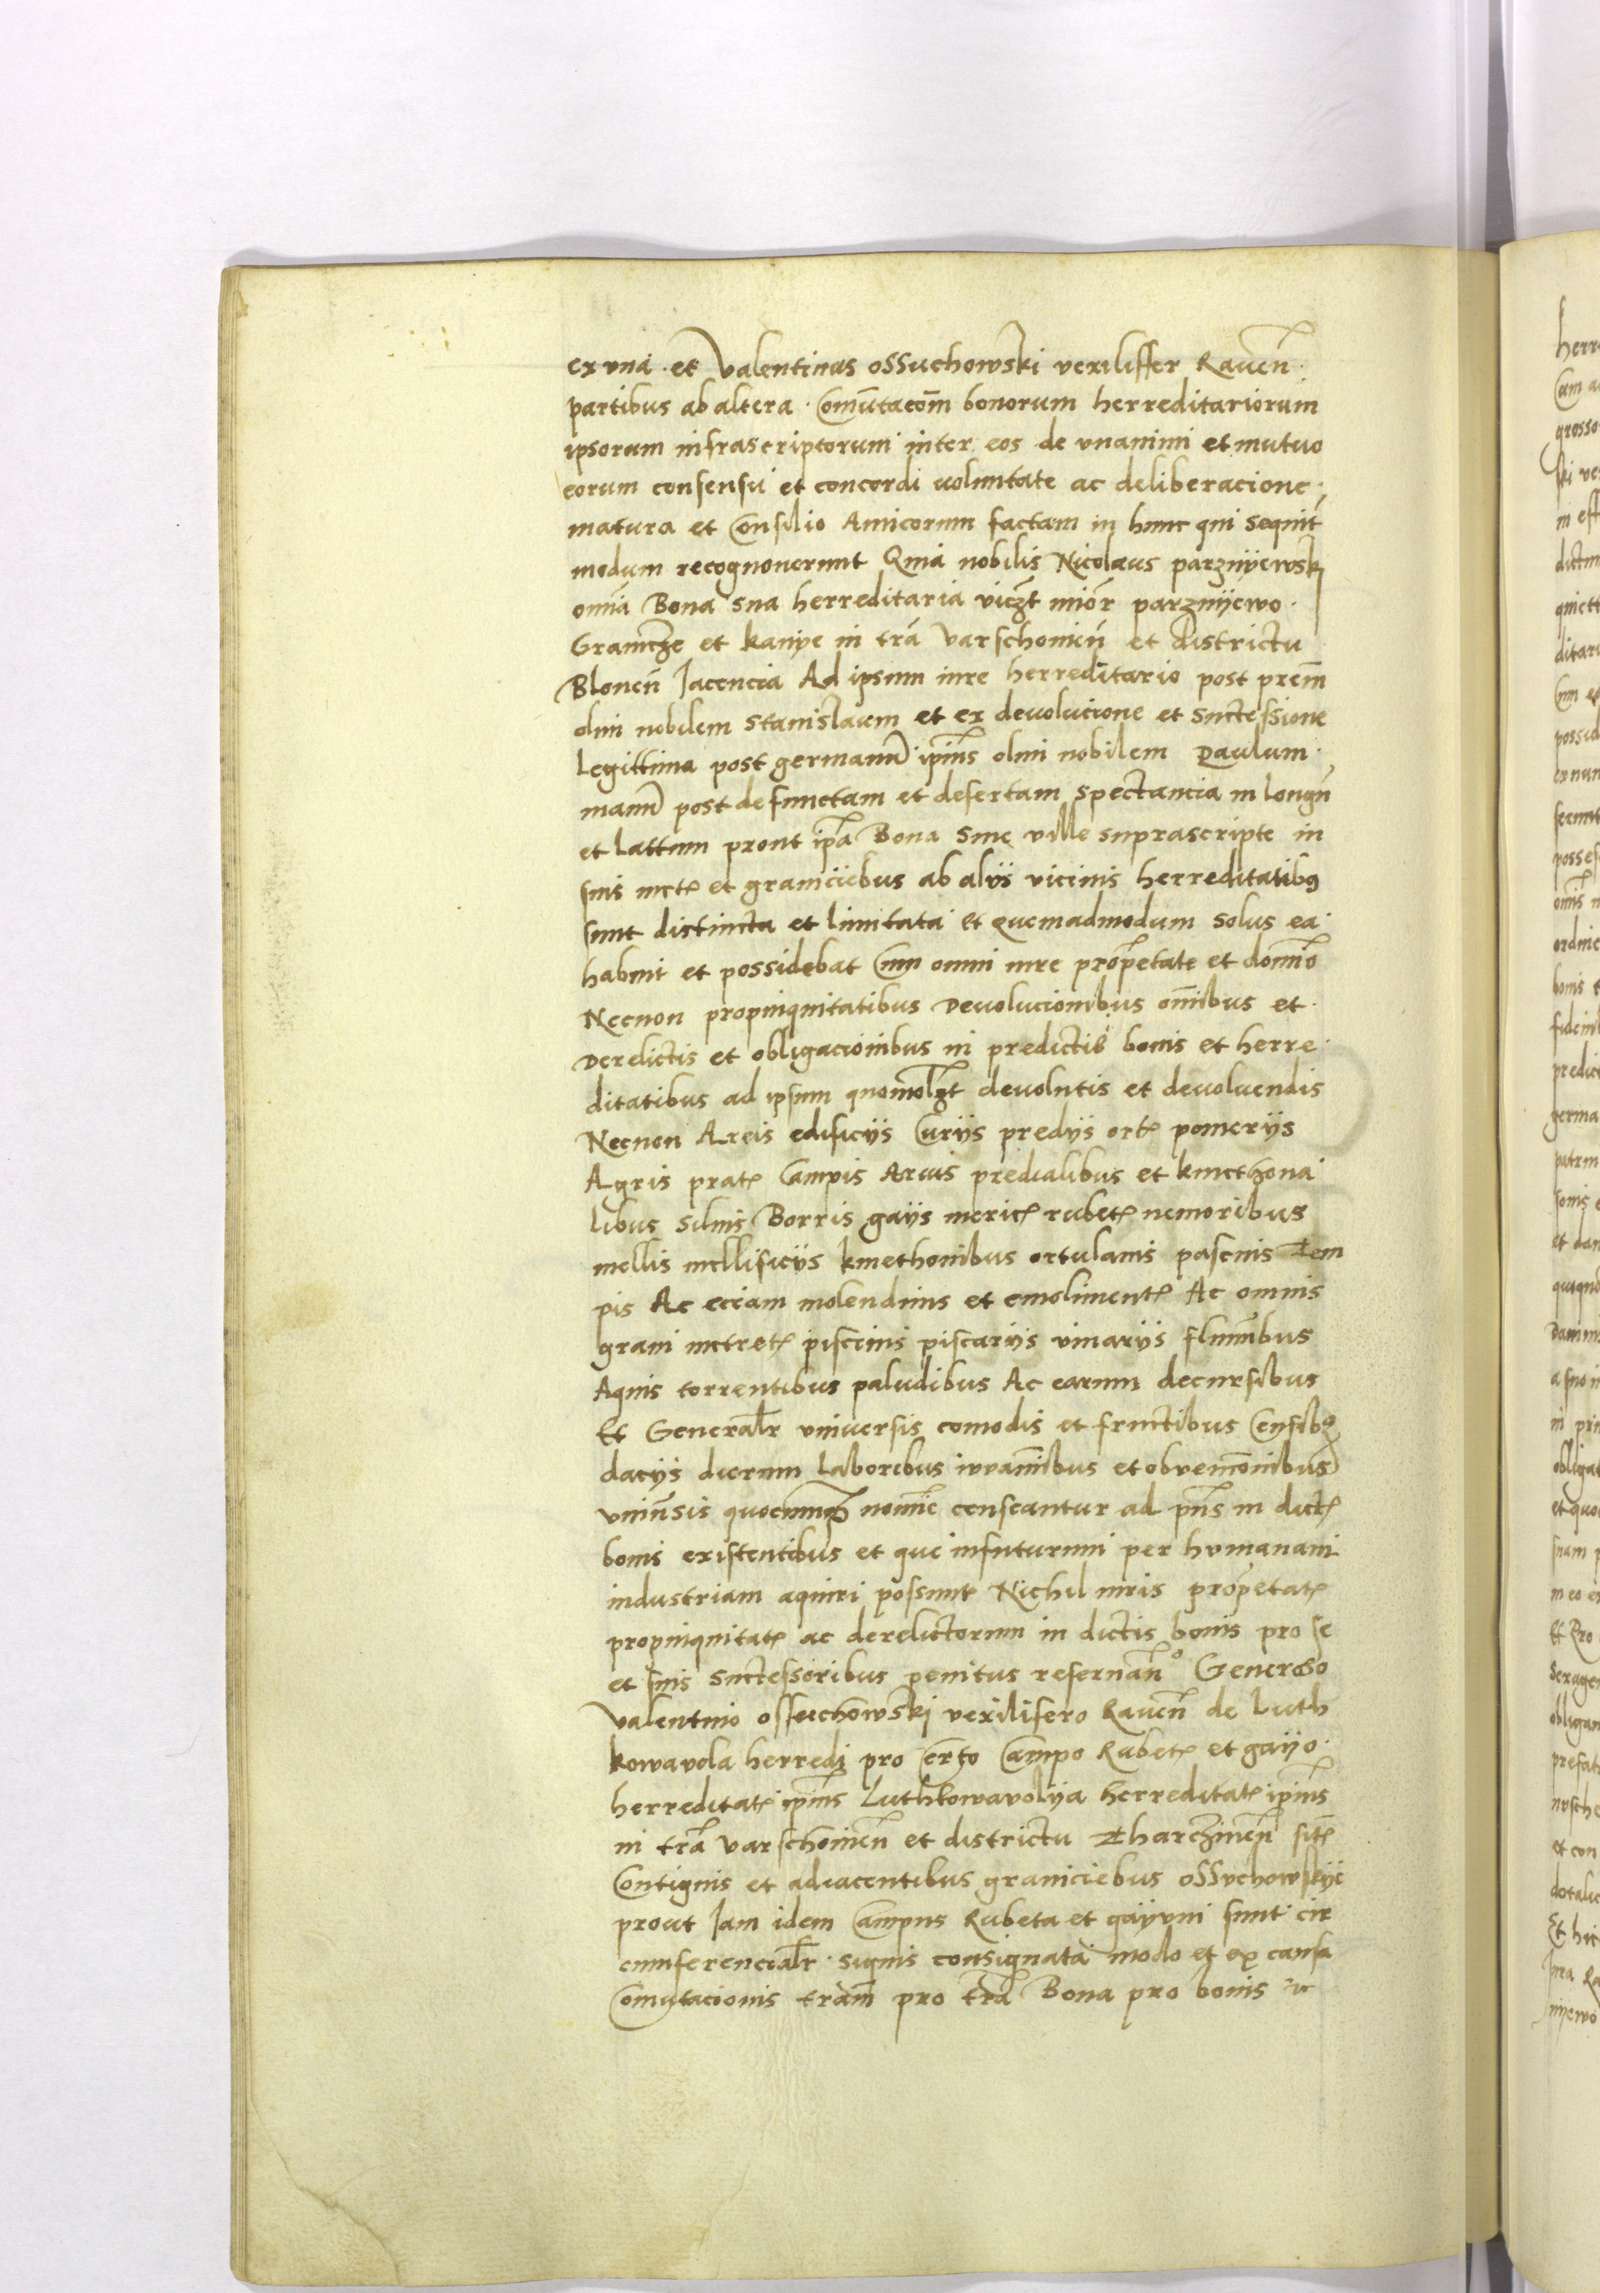 ex vna · et Valentinus ossuchowski vexiliffer Rauen̄ ·
partibus ab altera · Com̄utacōm bonorum herreditariorum
ipsorum infrascriptorum inter eos de vnanimi et mutuo
eorum consensu et concordi voluntate ac deliberacione ·
matura et Consilio Amicorum factam in hunc qui sequit̄
modum recognouerunt Quia nobilis Nicolaus parznyewskj
omīa Bona sua herreditaria viczt̄ mior̄ parznijewo ·
Granicze et kanye in trā Varschouien̄ et districtu
Blonen̄ Jacencia Ad ipsum iure herreditario post prem̄
olim nobilem Stanislaum et ex deuolucione et Successione
Legittima post germanū ip̄ius olim nobilem Paulum ·
manū post defunctam et desertam spectancia in longū
et Lattum prout ip̄a Bona Siue ville suprascripte in
suis metꝭ et graniciebus ab alijs vicinis herreditatibꝰ
sunt distincta et limitata et quemadmodum solus ea
habuit et possidebat Cum omni iure prop̄etate et domīo
Necnon propinquitatibus Deuolucionibus om̄ibus et ·
Derelictis et obligacionibus in predictis bonis et herre
ditatibus ad ipsum quomōlꝫt deuolutis et deuoluendis
Necnon Areis edificijs Curijs predijs ortꝭ pomerijs
Agris pratꝭ Campis Aruis predialibus et kmethona
libus siluis Borris gays mericꝭ rubetꝭ nemoribus
mellis mellificijs kmethonibus ortulanis pascuis Tem
pis Ac eciam molendinis et emolimentꝭ Ac omnis
grani metretꝭ piscinis piscarijs vinarijs flumībus
Aquis torrentibus paludibus Ac earum decursibus
Et Generalr̄ vniuersis comodis et fructibus Censibꝫ
dacijs dierum Laboribus iuuamībus et obuencōnibus
vniūsis quocumqꝫ nomīe censeantur ad pn̄s in dictꝭ
bonis existentibus et que infuturum per humanam
industriam aquiri possunt Nichil iuris prop̄etatꝭ
propinquitatꝭ ac derelictorum in dictis bonis pro se
et suis Successoribus penitus reseruan̄º Generoso
Valentino ossuchowskj vexilifero Rauen̄ de Luth
kowavola herredi pro certo Campo Rubetꝭ et gayo ·
herreditatꝭ ip̄ius Luthkowavolya herreditatꝭ ip̄ius
in trā Varschouien̄ et districtu Tharczinen̄ sitꝭ
Contiguis et adiacentibus graniciebus ossuchowskye
prout Jam idem Campus Rubeta et gayum sunt cir
cumferencialr̄ signis consignata modo et ex causa
Comutacionis tram̄ pro trā Bona pro bonis ⁊c